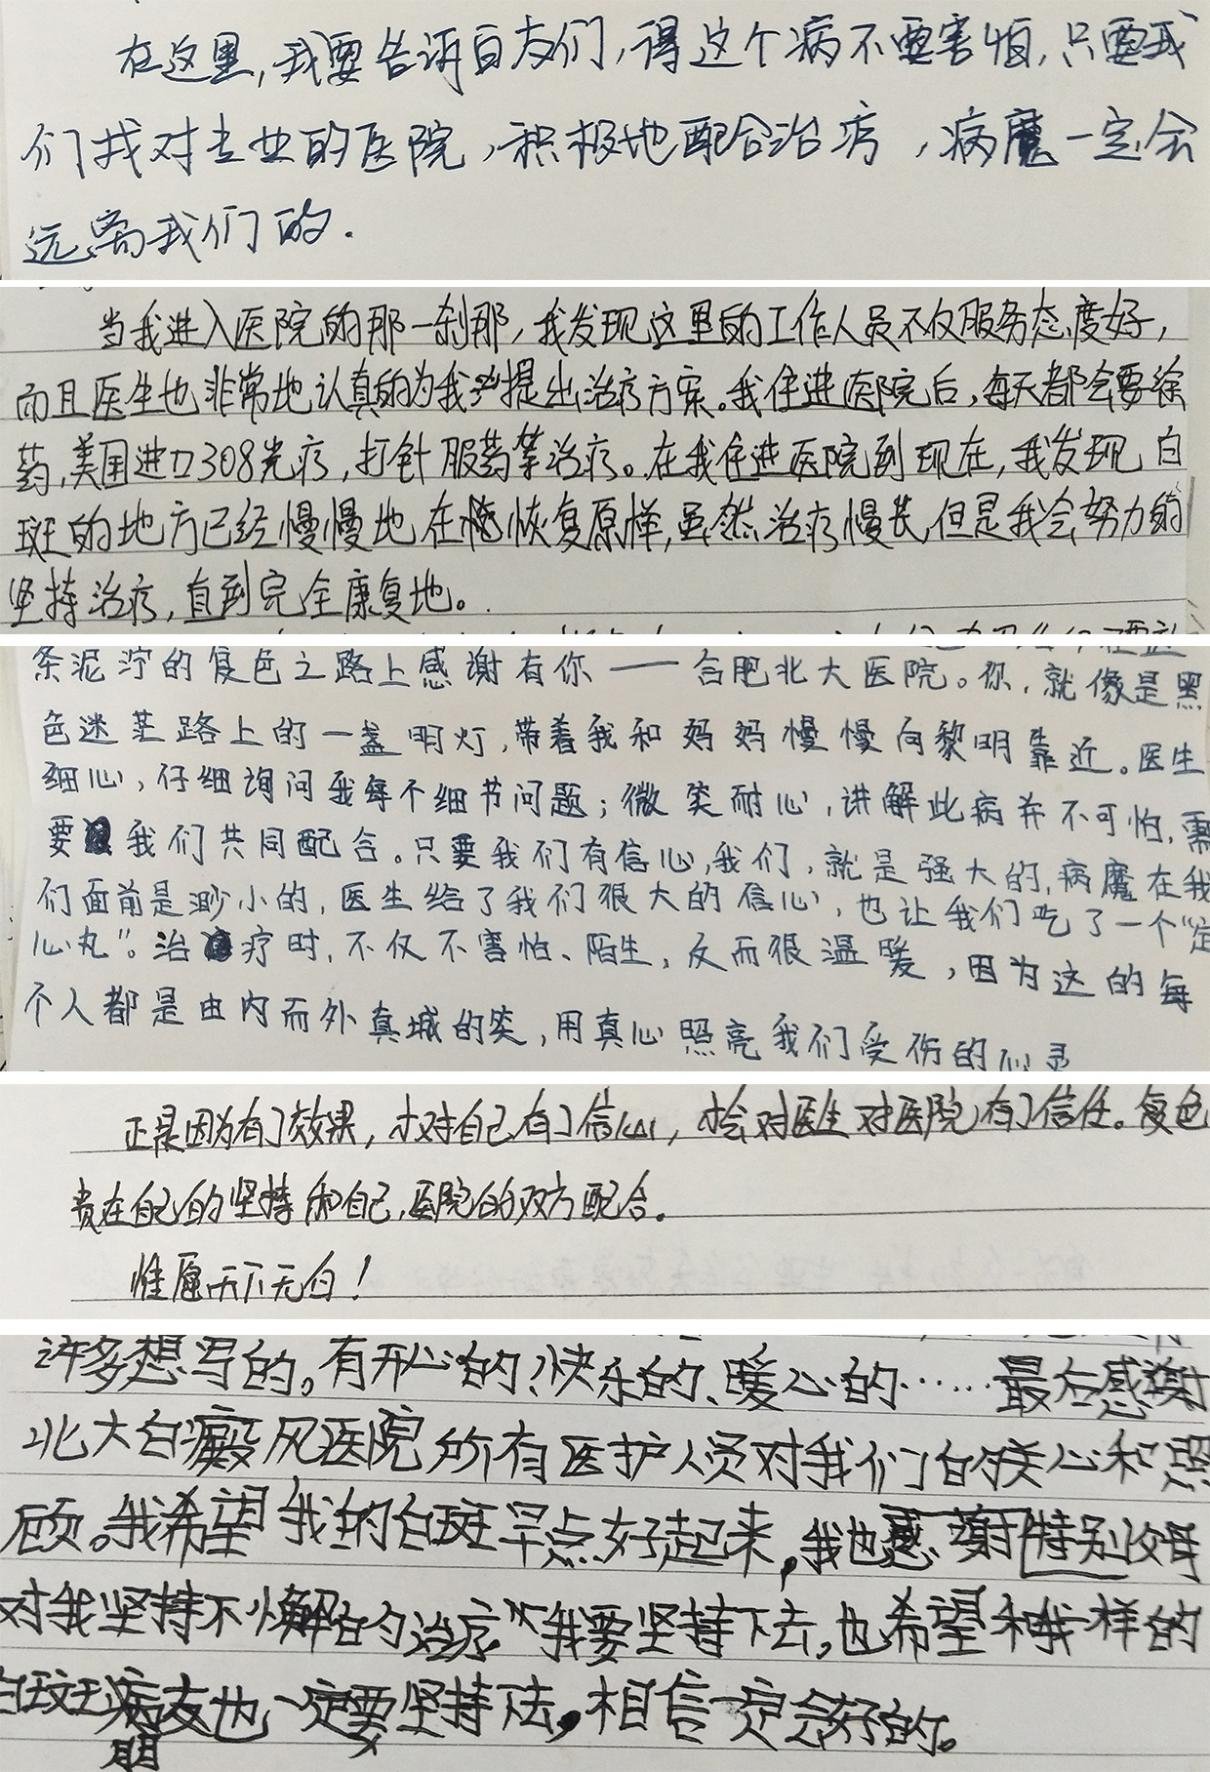 在这里,我要告诉白友们,得这个病不要害怕,只要我
们找对专业的医院,积极地配合治疗,病魔一定会
远离我们的.
当我进入医院的那一刹那,我发现这里的工作人员不仅服务态度好,
而且医生也非常地认真的为我提出治疗方案。我住进医院后,每天都会要涂
药,美国进口308光疗,打针服药等治疗。在我住进医院到现在,我发现白
斑的地方已经慢慢地在恢复原样,虽然治疗慢长,但是我会努力的
坚持治疗,直到完全康复地。
条泥泞的复色之路上感谢有你——合肥北大医院。你,就像是黑
色迷茫路上的一盏明灯,带着我和妈妈慢慢向黎明靠近。医生
细心,仔细询问我每个细节问题;微笑耐心,讲解此病并不可怕,需
要我们共同配合。只要我们有信心,我们,就是强大的,病魔在我
们面前是渺小的,医生给了我们很大的信心,也让我们吃了一个“定
心丸”。治疗时,不仅不害怕、陌生,反而很温暖,因为这的每
个人都是由内而外真城的笑,用真心照亮我们受伤的心灵
正是因为有了效果,才对自己有了信心,才会对医生对医院有了信任。复色
贵在自己的坚持和自己,医院的双方配合。
惟愿天下无白!
许多想写的。有开心的、快乐的、暖心的……最后感谢
北大白癜风医院所有医护人员对我们的关心和照
顾。我希望我的白斑早点好起来,我也感谢特别父母
对我坚持不懈的治疗,我要坚持下去,也希望和我一样的
白斑病友也一定要坚持下去,相信一定会好的。